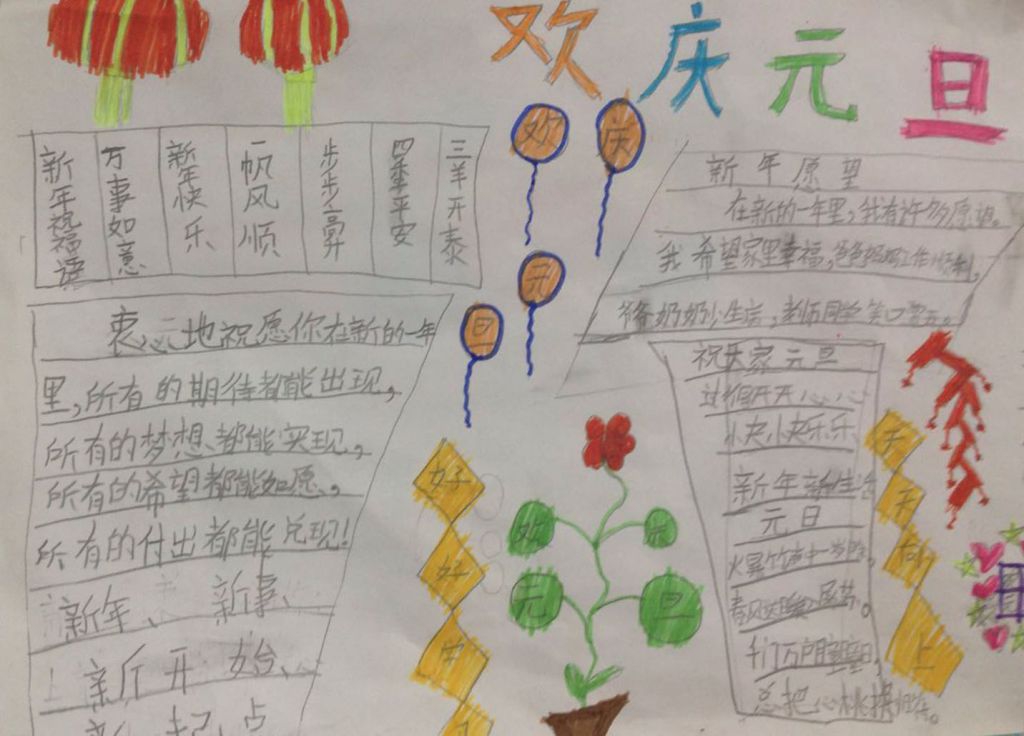 欢庆元旦
新年祝福语
万事如意
新年快乐
一帆风顺
步步高升
四季平安
三羊开泰
欢
庆
元
旦
新年愿望
在新的一年里,我有许多愿望。
我希望家里幸福,爸爸妈妈工作顺利,
爷爷奶奶少生活,老师同学笑口常开。
衷心地祝愿你在新的一年
里,所有的期待都能出现,
所有的梦想都能实现,
所有的希望都能如愿,
所有的付出都能兑现!
新年、新事、
新开始、
新起点
祝大家元旦
过得开开心心
快快乐乐
新年新生活
元旦
火暴竹声中一岁除,
春风送暖入屠苏。
千门万户曈曈日,
总把
好
好
欢
元
旦
天
天
向
上